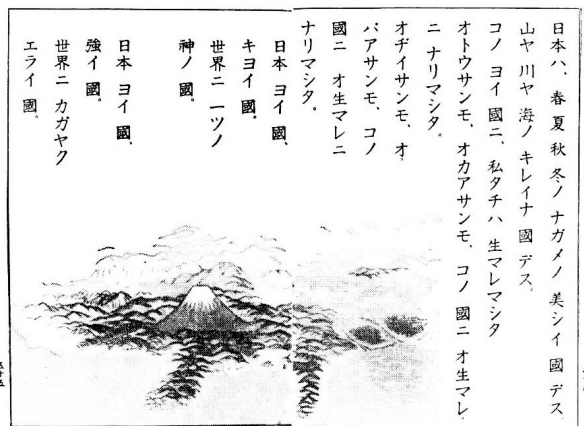 日本ハ、春夏秋冬ノ ナガメノ 美シイ 國デス。
山ヤ 川ヤ 海ノ キレイナ 國デス。
コノ ヨイ 國ニ、私タチハ 生マレマシタ
オトウサンモ、オカアサンモ、コノ 國ニ オ生マレ
ニ ナリマシタ。
オヂイサンモ、オ
バアサンモ、コノ
國ニ オ生マレニ
ナリマシタ。
日本 ヨイ 國、
キヨイ 國。
世界ニ 一ツノ
神ノ 國。
日本 ヨイ 國、
強イ 國。
世界ニ カガヤク
エライ 國。